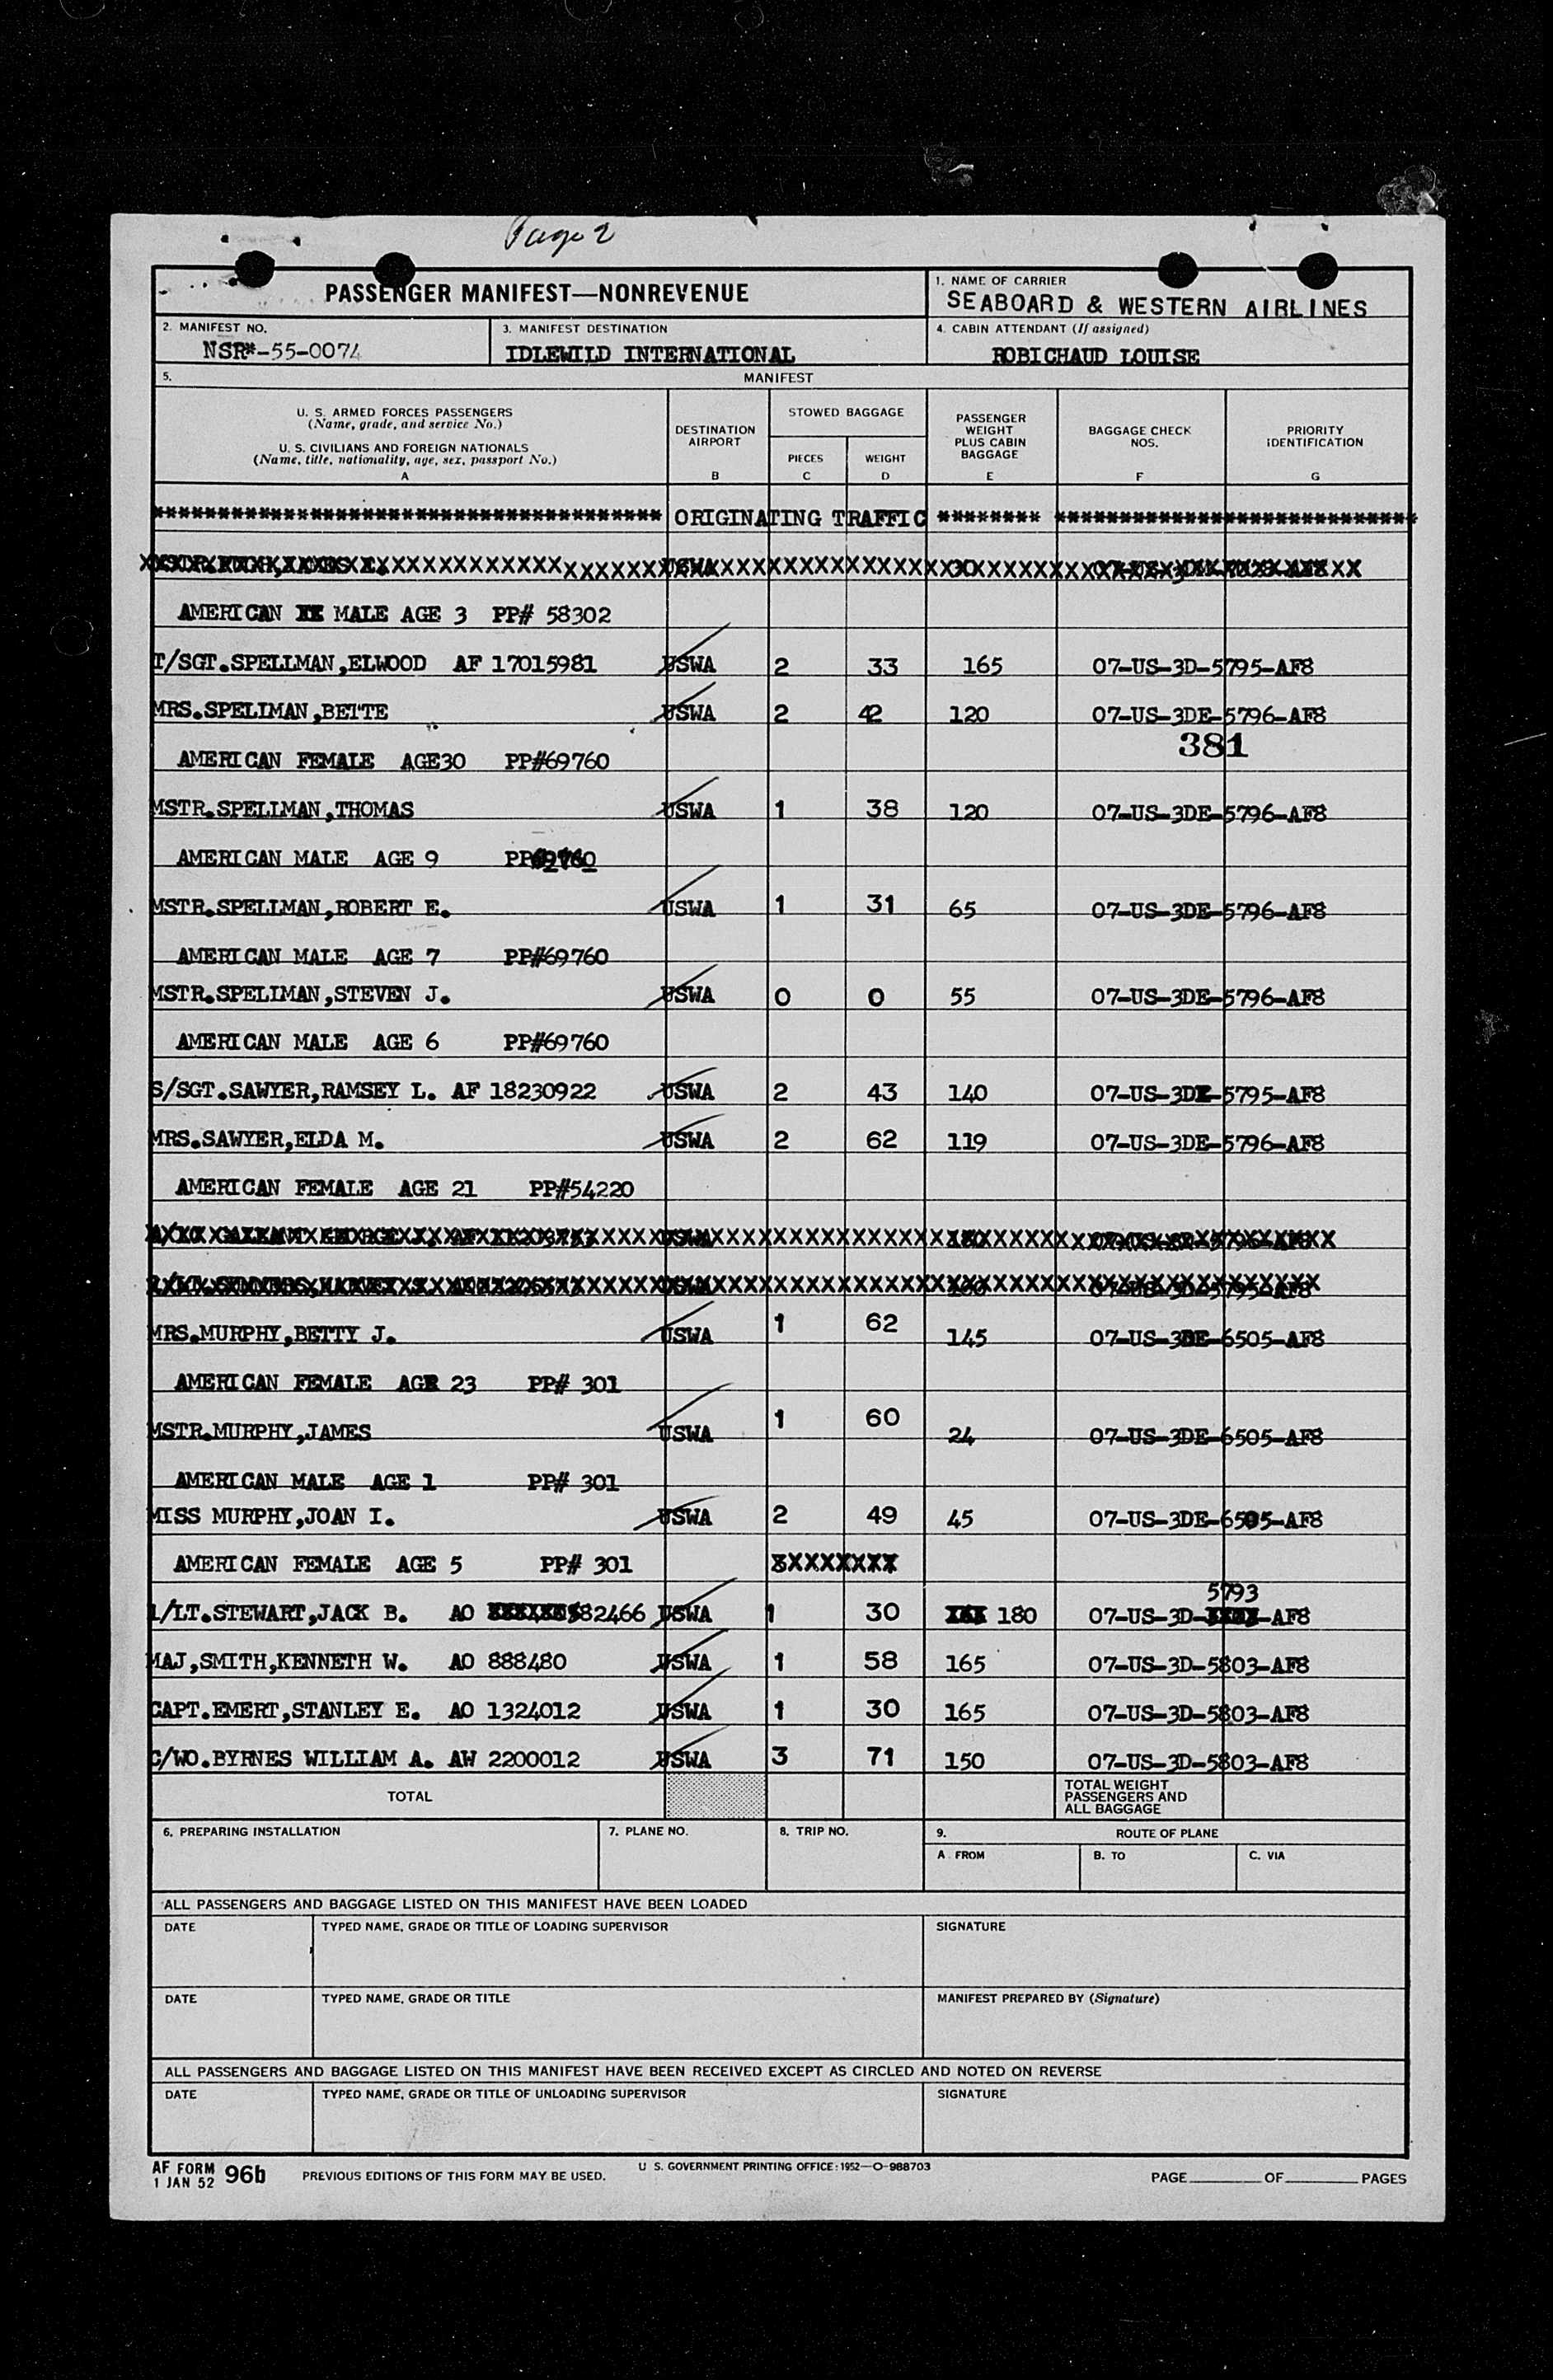 Page 2
PASSENGER MANIFEST—NONREVENUE
1. NAME OF CARRIER
SEABOARD & WESTERN AIRLINES
2. MANIFEST NO.
NSR*-55-0074
3. MANIFEST DESTINATION
IDLEWILD INTERNATIONAL
4. CABIN ATTENDANT (If assigned)
ROBICHAUD LOUISE
5. MANIFEST
U. S. ARMED FORCES PASSENGERS
(Name, grade, and service No.)
U. S. CIVILIANS AND FOREIGN NATIONALS
(Name, title, nationality, age, sex, passport No.)
A
DESTINATION
AIRPORT
B
STOWED BAGGAGE
PIECES
C
WEIGHT
D
PASSENGER
WEIGHT
PLUS CABIN
BAGGAGE
E
BAGGAGE CHECK
NOS.
F
PRIORITY
IDENTIFICATION
G
ORIGINATING TRAFFIC
AMERICAN MALE AGE 3 PP# 58302
T/SGT.SPELLMAN,ELWOOD AF 17015981 USWA 2 33 165 07-US-3D-5795-AF8
MRS.SPELLMAN,BETTE USWA 2 42 120 07-US-3DE-5796-AF8
381
AMERICAN FEMALE AGE30 PP#69760
MSTR.SPELLMAN,THOMAS USWA 1 38 120 07-US-3DE-5796-AF8
AMERICAN MALE AGE 9 PP69760
MSTR.SPELLMAN,ROBERT E. USWA 1 31 65 07-US-3DE-5796-AF8
AMERICAN MALE AGE 7 PP#69760
MSTR.SPELLMAN,STEVEN J. USWA 0 0 55 07-US-3DE-5796-AF8
AMERICAN MALE AGE 6 PP#69760
S/SGT.SAWYER,RAMSEY L. AF 18230922 USWA 2 43 140 07-US-3D-5795-AF8
MRS.SAWYER,ELDA M. USWA 2 62 119 07-US-3DE-5796-AF8
AMERICAN FEMALE AGE 21 PP#54220
MRS.MURPHY,BETTY J. USWA 1 62 145 07-US-3DE-6505-AF8
AMERICAN FEMALE AGE 23 PP# 301
MSTR.MURPHY,JAMES USWA 1 60 24 07-US-3DE-6505-AF8
AMERICAN MALE AGE 1 PP# 301
MISS MURPHY,JOAN I. USWA 2 49 45 07-US-3DE-6505-AF8
AMERICAN FEMALE AGE 5 PP# 301
5793
1/LT.STEWART,JACK B. AO 582466 USWA 1 30 180 07-US-3D- -AF8
MAJ,SMITH,KENNETH W. AO 888480 USWA 1 58 165 07-US-3D-5803-AF8
CAPT.EMERT,STANLEY E. AO 1324012 USWA 1 30 165 07-US-3D-5803-AF8
C/WO.BYRNES WILLIAM A. AW 2200012 USWA 3 71 150 07-US-3D-5803-AF8
TOTAL
TOTAL WEIGHT
PASSENGERS AND
ALL BAGGAGE
6. PREPARING INSTALLATION
7. PLANE NO.
8. TRIP NO.
9. ROUTE OF PLANE
A FROM
B. TO
C. VIA
ALL PASSENGERS AND BAGGAGE LISTED ON THIS MANIFEST HAVE BEEN LOADED
DATE
TYPED NAME, GRADE OR TITLE OF LOADING SUPERVISOR
SIGNATURE
DATE
TYPED NAME, GRADE OR TITLE
MANIFEST PREPARED BY (Signature)
ALL PASSENGERS AND BAGGAGE LISTED ON THIS MANIFEST HAVE BEEN RECEIVED EXCEPT AS CIRCLED AND NOTED ON REVERSE
DATE
TYPED NAME, GRADE OR TITLE OF UNLOADING SUPERVISOR
SIGNATURE
AF FORM
1 JAN 52 96b
PREVIOUS EDITIONS OF THIS FORM MAY BE USED.
U S. GOVERNMENT PRINTING OFFICE: 1952—O-988703
PAGE OF PAGES